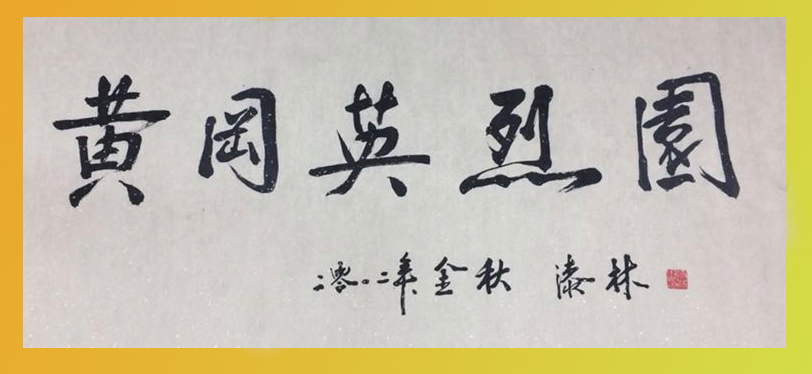 黄冈英烈園
二零。二年金秋 漆林